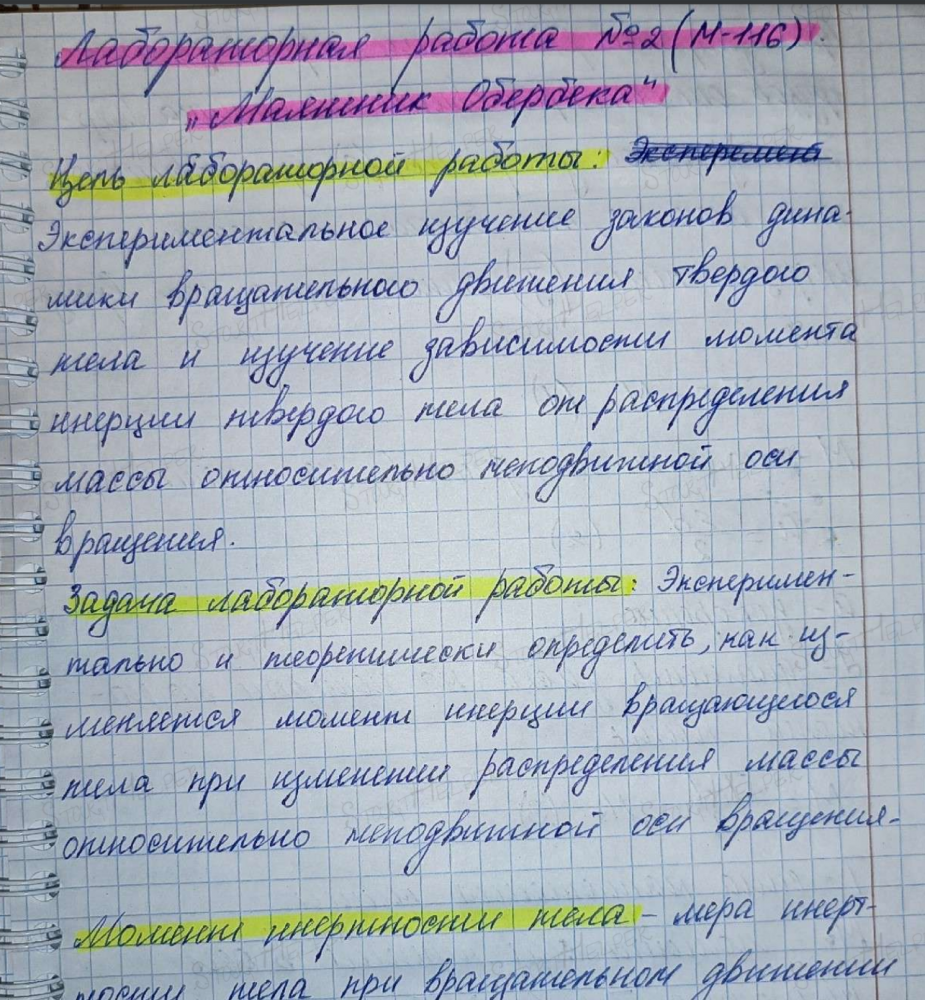 Лабораторная работа №2 (М-116).
„Маятник Обербека“
Цель лабораторной работы: Эксперемент
Экспериментальное изучение законов дина-
мики вращательного движения твердого
тела и изучение зависимости момента
инерции твердого тела от распределения
массы относительно неподвижной оси
вращения.
Задача лабораторной работы: Эксперимен-
тально и теоретически определить, как из-
меняется момент инерции вращающегося
тела при изменении распределения массы
относительно неподвижной оси вращения.
Момент инертности тела - мера инерт-
ности тела при вращательном движении